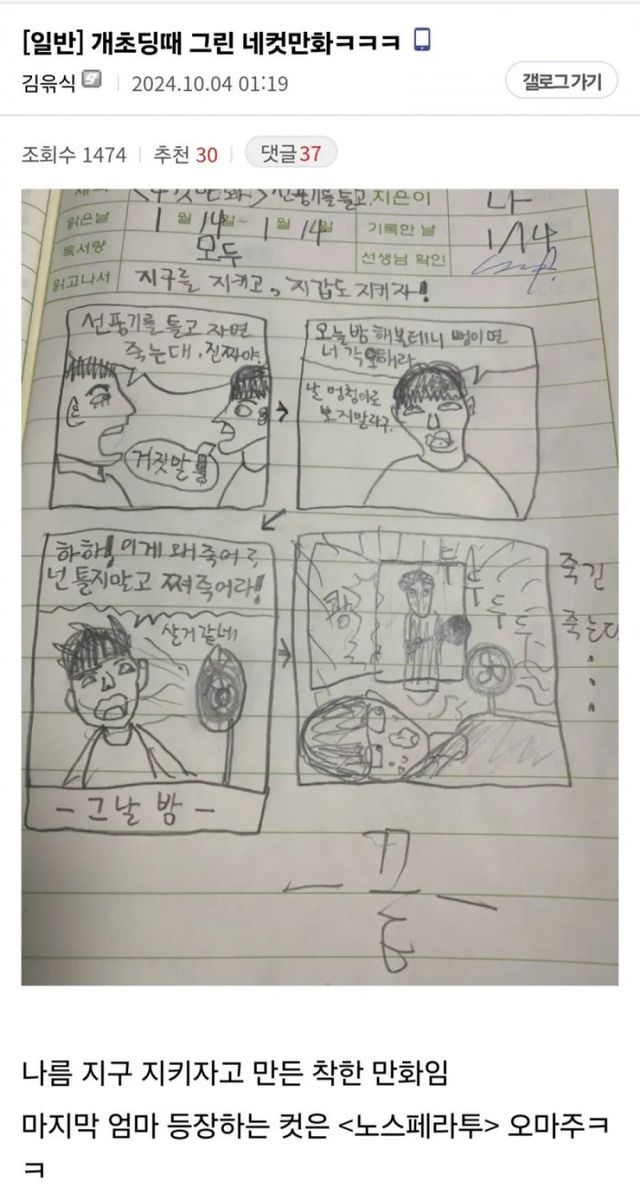 [일반] 개초딩때 그린 네컷만화ㅋㅋㅋ
김유식
2024.10.04 01:19
갤로그 가기
조회수 1474
추천 30
댓글 37
선풍기를 틀고
지은이
나
읽은날
1 월 14일~ 1 월 14일
기록한 날
1/14
독서량
모두
선생님 확인
읽고나서
지구를 지키고, 지갑도 지키자!
선풍기를 틀고 자면
죽는대. 진짜야.
거짓말
오늘밤 해볼테니 뻥이면
너 각오해라
날 멍청이로
보지말라구.
하하! 이게 왜 죽어?
넌 틀지말고 쪄죽어라!
살거같네
- 그날 밤 -
쾅
두
두
두
두
죽긴
죽는다
...
- 끝 -
나름 지구 지키자고 만든 착한 만화임
마지막 엄마 등장하는 컷은 <노스페라투> 오마주ㅋ
ㅋ